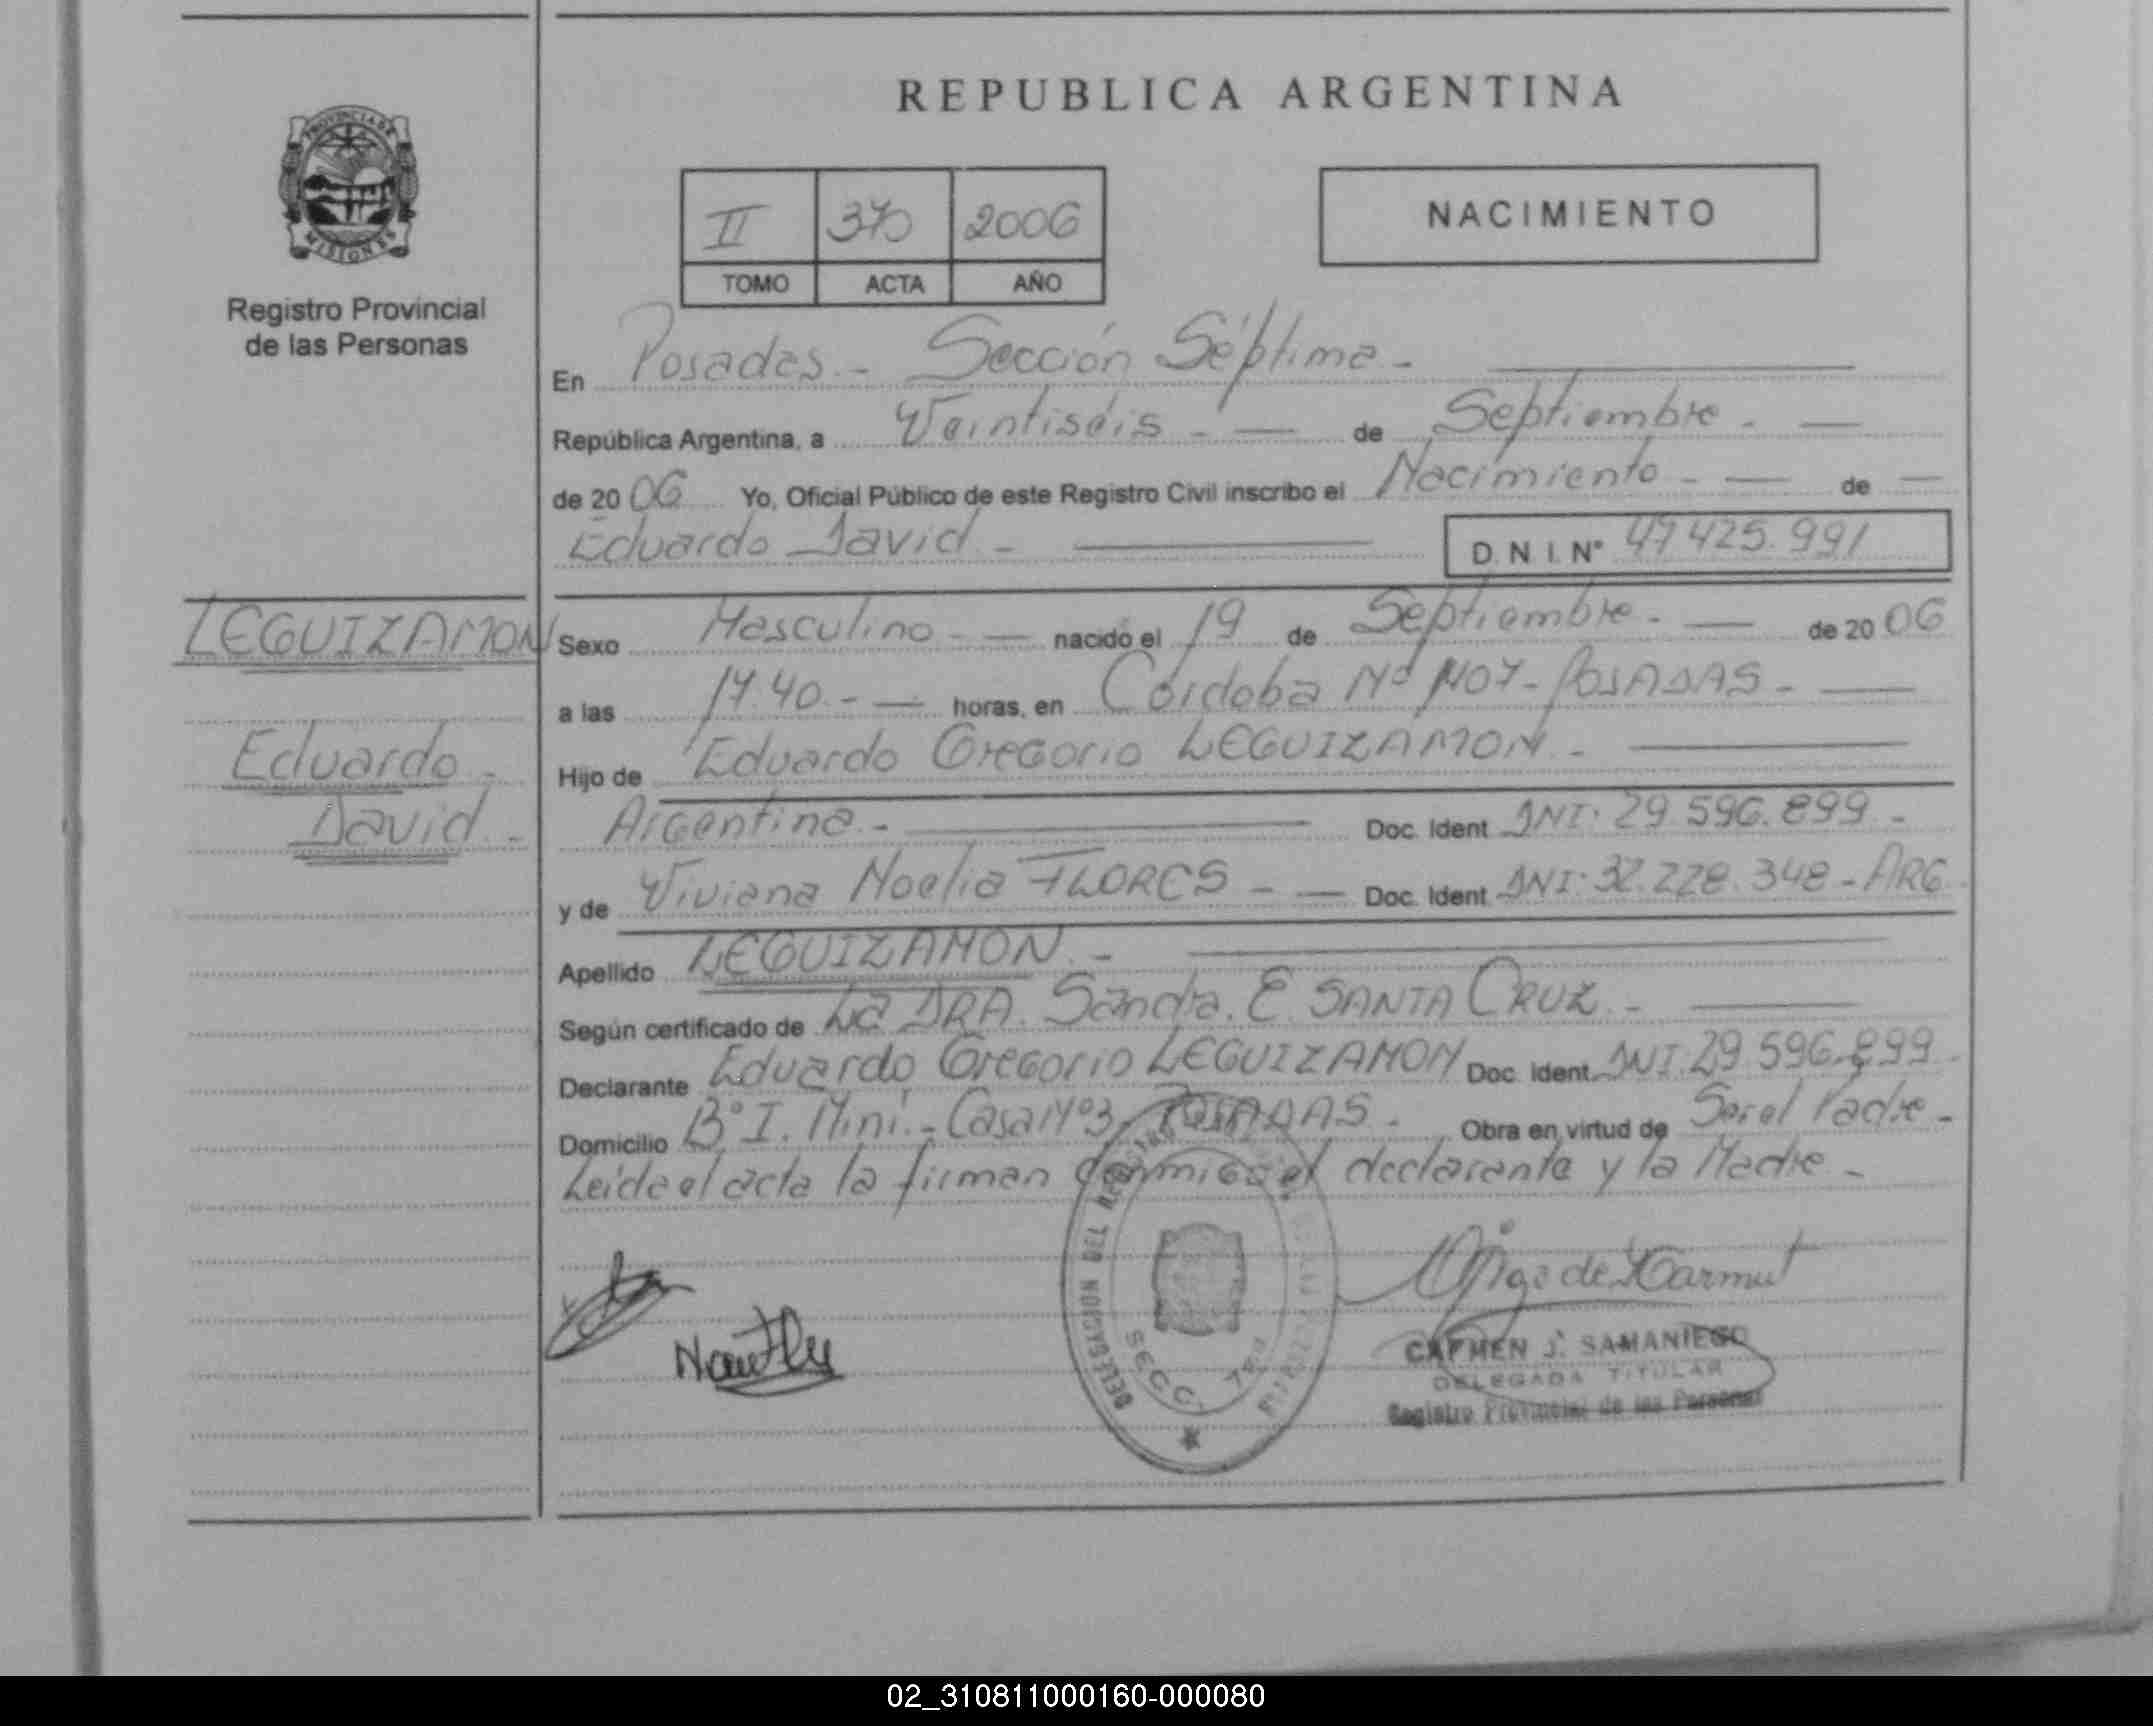 REPUBLICA ARGENTINA
PROVINCIA DE
MISIONES
Registro Provincial
de las Personas
II 370 2006
TOMO ACTA AÑO
NACIMIENTO
En Posadas - Sección Séptima -
República Argentina, a Veintiséis - de Septiembre -
de 2006 Yo, Oficial Público de este Registro Civil inscribo el Nacimiento - de
Eduardo David - D.N.I. Nº 49 425.991
LEGUIZAMON
Eduardo -
David -
Sexo Masculino - nacido el 19 de Septiembre - de 2006
a las 17.40 - horas, en Córdoba Nº 1407 - POSADAS -
Hijo de Eduardo Gregorio LEGUIZAMON -
Argentina - Doc. Ident DNI. 29 596.899 -
y de Viviana Noelia FLORES - Doc. Ident DNI. 32.228.348 - ARG
Apellido LEGUIZAMON -
Según certificado de La DRA. Sandra. E. SANTA CRUZ -
Declarante Eduardo Gregorio LEGUIZAMON Doc. Ident DNI. 29 596.899 -
Domicilio Bº I. Miní. - Casa Nº 3 - POSADAS - Obra en virtud de Ser el Padre -
Leída el acta la firman conmigo el declarante y la Madre -
DELEGACION DEL
SECC. 7ma
CARMEN J. SAMANIEGO
DELEGADA TITULAR
Registro Provincial de las Personas
02_310811000160-000080